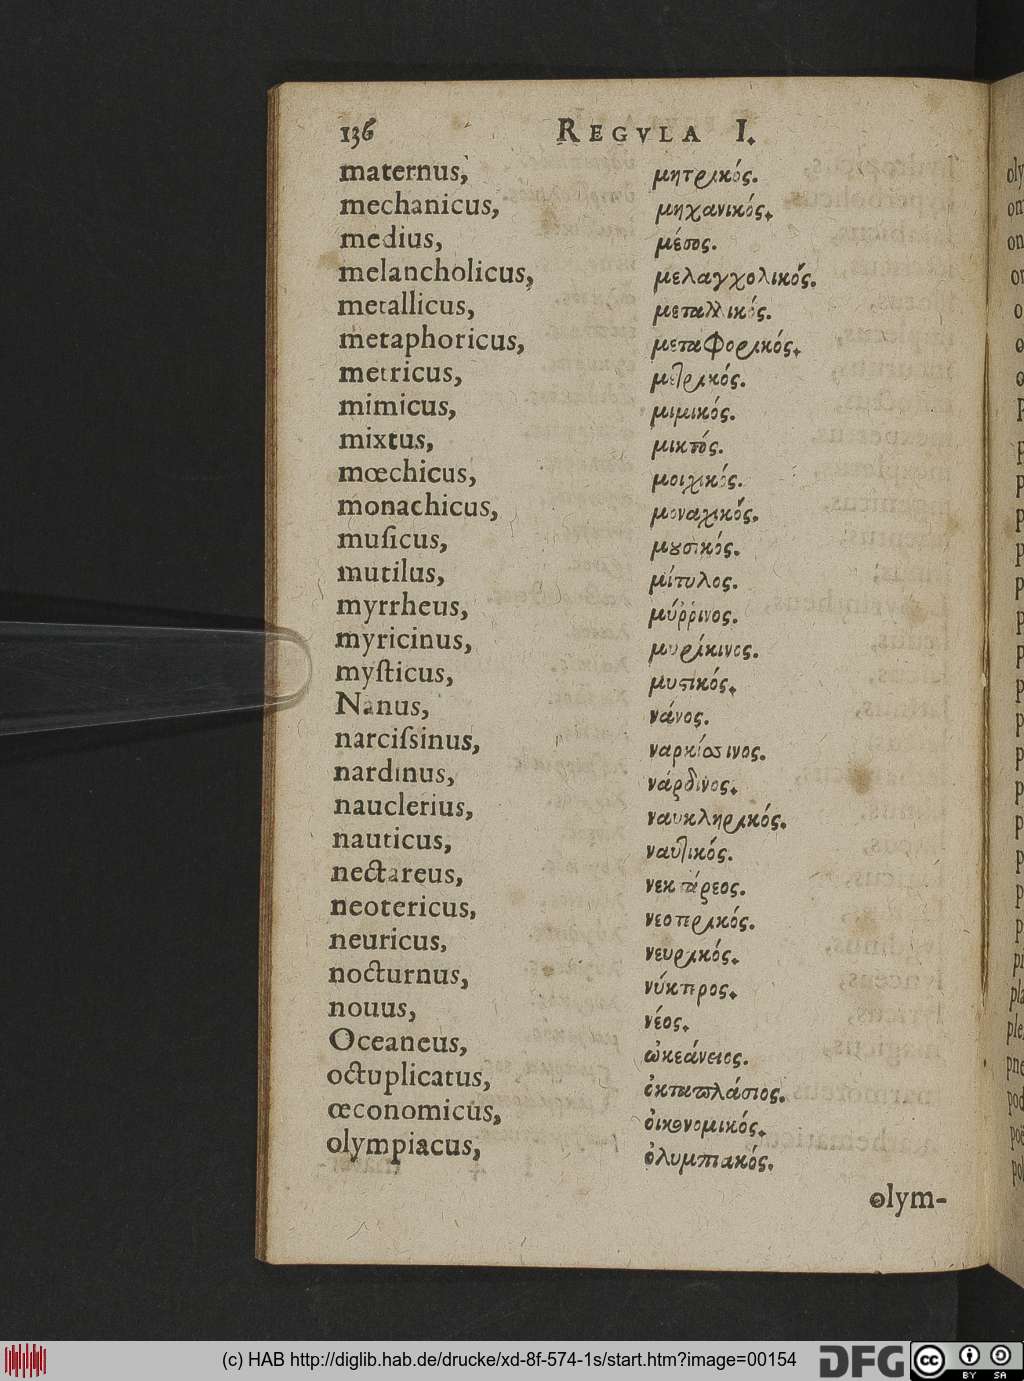 136 REGVLA I.
maternus, μητρικός.
mechanicus, μηχανικός.
medius, μέσος.
melancholicus, μελαγχολικός.
metallicus, μεταλλικός.
metaphoricus, μεταφορικός.
metricus, μετρικός.
mimicus, μιμικός.
mixtus, μικτός.
mœchicus, μοιχικός.
monachicus, μοναχικός.
muſicus, μουσικός.
mutilus, μίτυλος.
myrrheus, μύῤῥινος.
myricinus, μυρίκινος.
myſticus, μυστικός.
Nanus, νάνος.
narciſsinus, ναρκίσσινος.
nardinus, νάρδινος.
nauclerius, ναυκληρικός.
nauticus, ναυτικός.
nectareus, νεκτάρεος.
neotericus, νεοτερικός.
neuricus, νευρικός.
nocturnus, νύκτερος.
nouus, νέος.
Oceaneus, ὠκεάνειος.
octuplicatus, ὀκταπλάσιος.
œconomicus, οἰκονομικός.
olympiacus, ὀλυμπιακός.
olym-
(c) HAB http://diglib.hab.de/drucke/xd-8f-574-1s/start.htm?image=00154 DFG cc BY SA